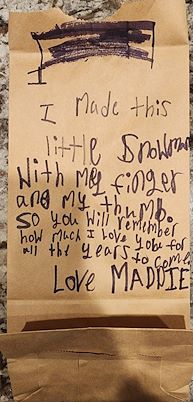 I
I made this
little Snowman
With my finger
and my thumb.
So you will remember
how much I love you for
all the years to come
Love MADDIE